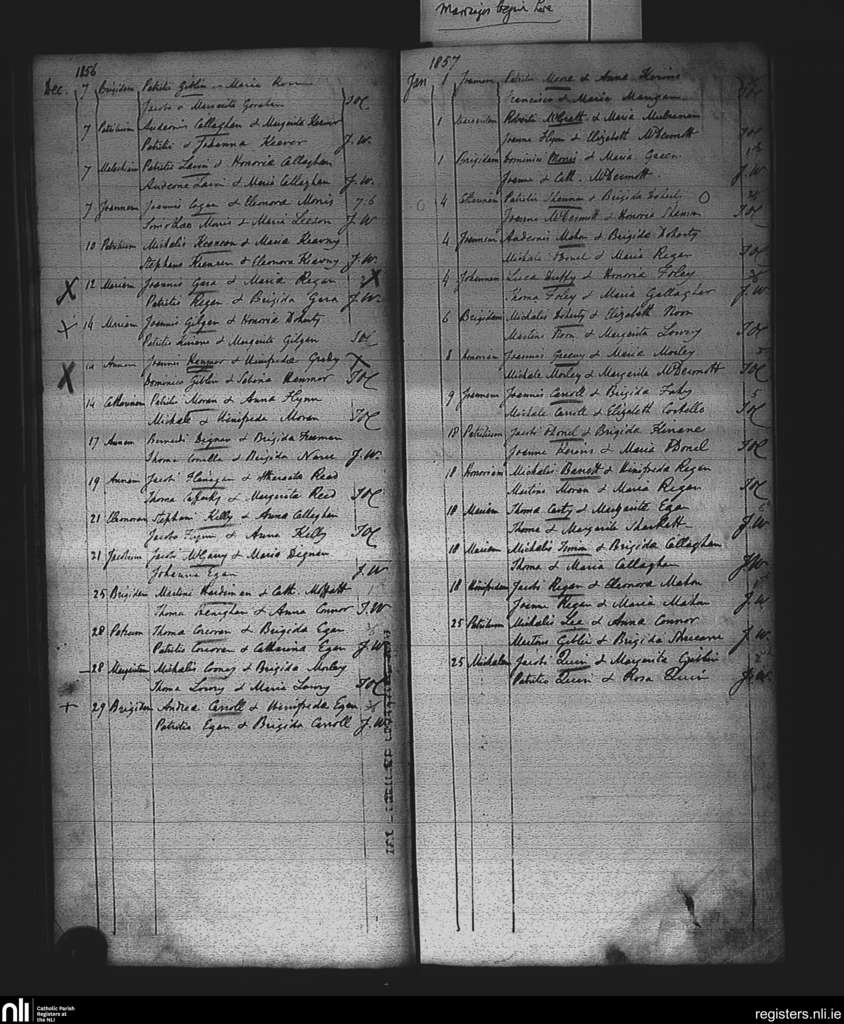 Marriages begin here
1856
Dec. 7 Brigidam Patritii Giblin & Maria
Jacobo & Margarita
7 Patritium Andronis Callaghan & Margarita Keever
Patritii & Johanna Keever J. W.
7 Malachium Patritii Lavin & Honoria Callaghan
Androne Lavin & Maria Callaghan J. W.
7 Joannem Joannis Cogan & Eleonora Morris 7.6
Timothao Morris & Maria Leeson J. W
10 Patritium Michalis Keenan & Maria Kearny
Stephano Keenan & Eleonora Kearny J. W.
12 Mariam Joannis Gara & Maria Regan
Patritio Regan & Brigida Gara J. W.
14 Mariam Joannis Gilgan & Honoria Doherty
Patritio & Margarita Gilgan
14 Annam Joannis & Winifreda
Dominico Giblin & Sabina
14 Catharinam Patritii Moran & Anna Flynn
Michale & Winifreda Moran
17 Annam Bernardi Degnan & Brigida Freeman
Thoma & Brigida J. W.
19 Annam Jacobi Flanagan & Read
Thoma Cafferky & Margarita Reed
21 Eleonoram Stephani Kelly & Anna Callaghan
Jacobo & Anna Kelly
21 Jacobum Jacobi McGarry & Maria Degnan
Johanna Egan J. W
25 Brigidam Martini Hardiman & Cath. Moffatt
Thoma & Anna Connor J. W
28 Patricum Thoma Corcoran & Brigida Egan
Patritio Corcoran & Catharina Egan J. W
28 Margaritam Michalis & Brigida Morley
Thoma Lowry & Maria Lowry
29 Brigidam Andrea Carroll & Winifreda Egan
Patritio Egan & Brigida Carroll J. W
1857
Jan 1 Joannem Patritii Moore & Anna Kerins
Francisco & Maria Mangan
1 Roberti McGrath & Maria Mulrenan
Joanne Flynn & Elizabeth McDermott
1 Brigidam Dominici Morris & Maria Green
Joanne & Cath. McDermott J. W
4 Patritii & Brigida Doherty O
Joanne McDermott & Honoria
4 Joannem Andronis Mahon & Brigida Doherty
Michale & Maria Regan
4 Johannem Luca Duffy & Honoria Foley
Thoma Foley & Maria Gallagher J. W
6 Brigidam Michalis Doherty & Elizabeth Noon
Martino Noon & Margarita Lowry
8 Honoriam Joannis Greeny & Maria Morley
Michale Morley & Margarita McDermott
9 Joannem Joannis Carroll & Brigida Fahy
Michale Carroll & Elizabeth Costello
18 Patritium Jacobi & Brigida
Joanne Kerins & Maria
18 Honoriam Michalis Barrett & Winifreda Regan
Martino Moran & Maria Regan
18 Mariam Thoma Carty & Margarita Egan
Thoma & Margarita J. W
18 Mariam Michalis & Brigida Callaghan
Thoma & Maria Callaghan J. W
18 Winifredam Jacobi Regan & Eleonora Mahon
Joanne Regan & Maria Mahon J. W
25 Patritium Michalis Lee & Anna Connor
Martino Giblin & Brigida J. W.
25 Michalem Jacobi Quin & Margarita Giblin
Patritio Quin & Rosa Quin J. W.
nli
Catholic Parish
Registers at
the NLI
registers.nli.ie